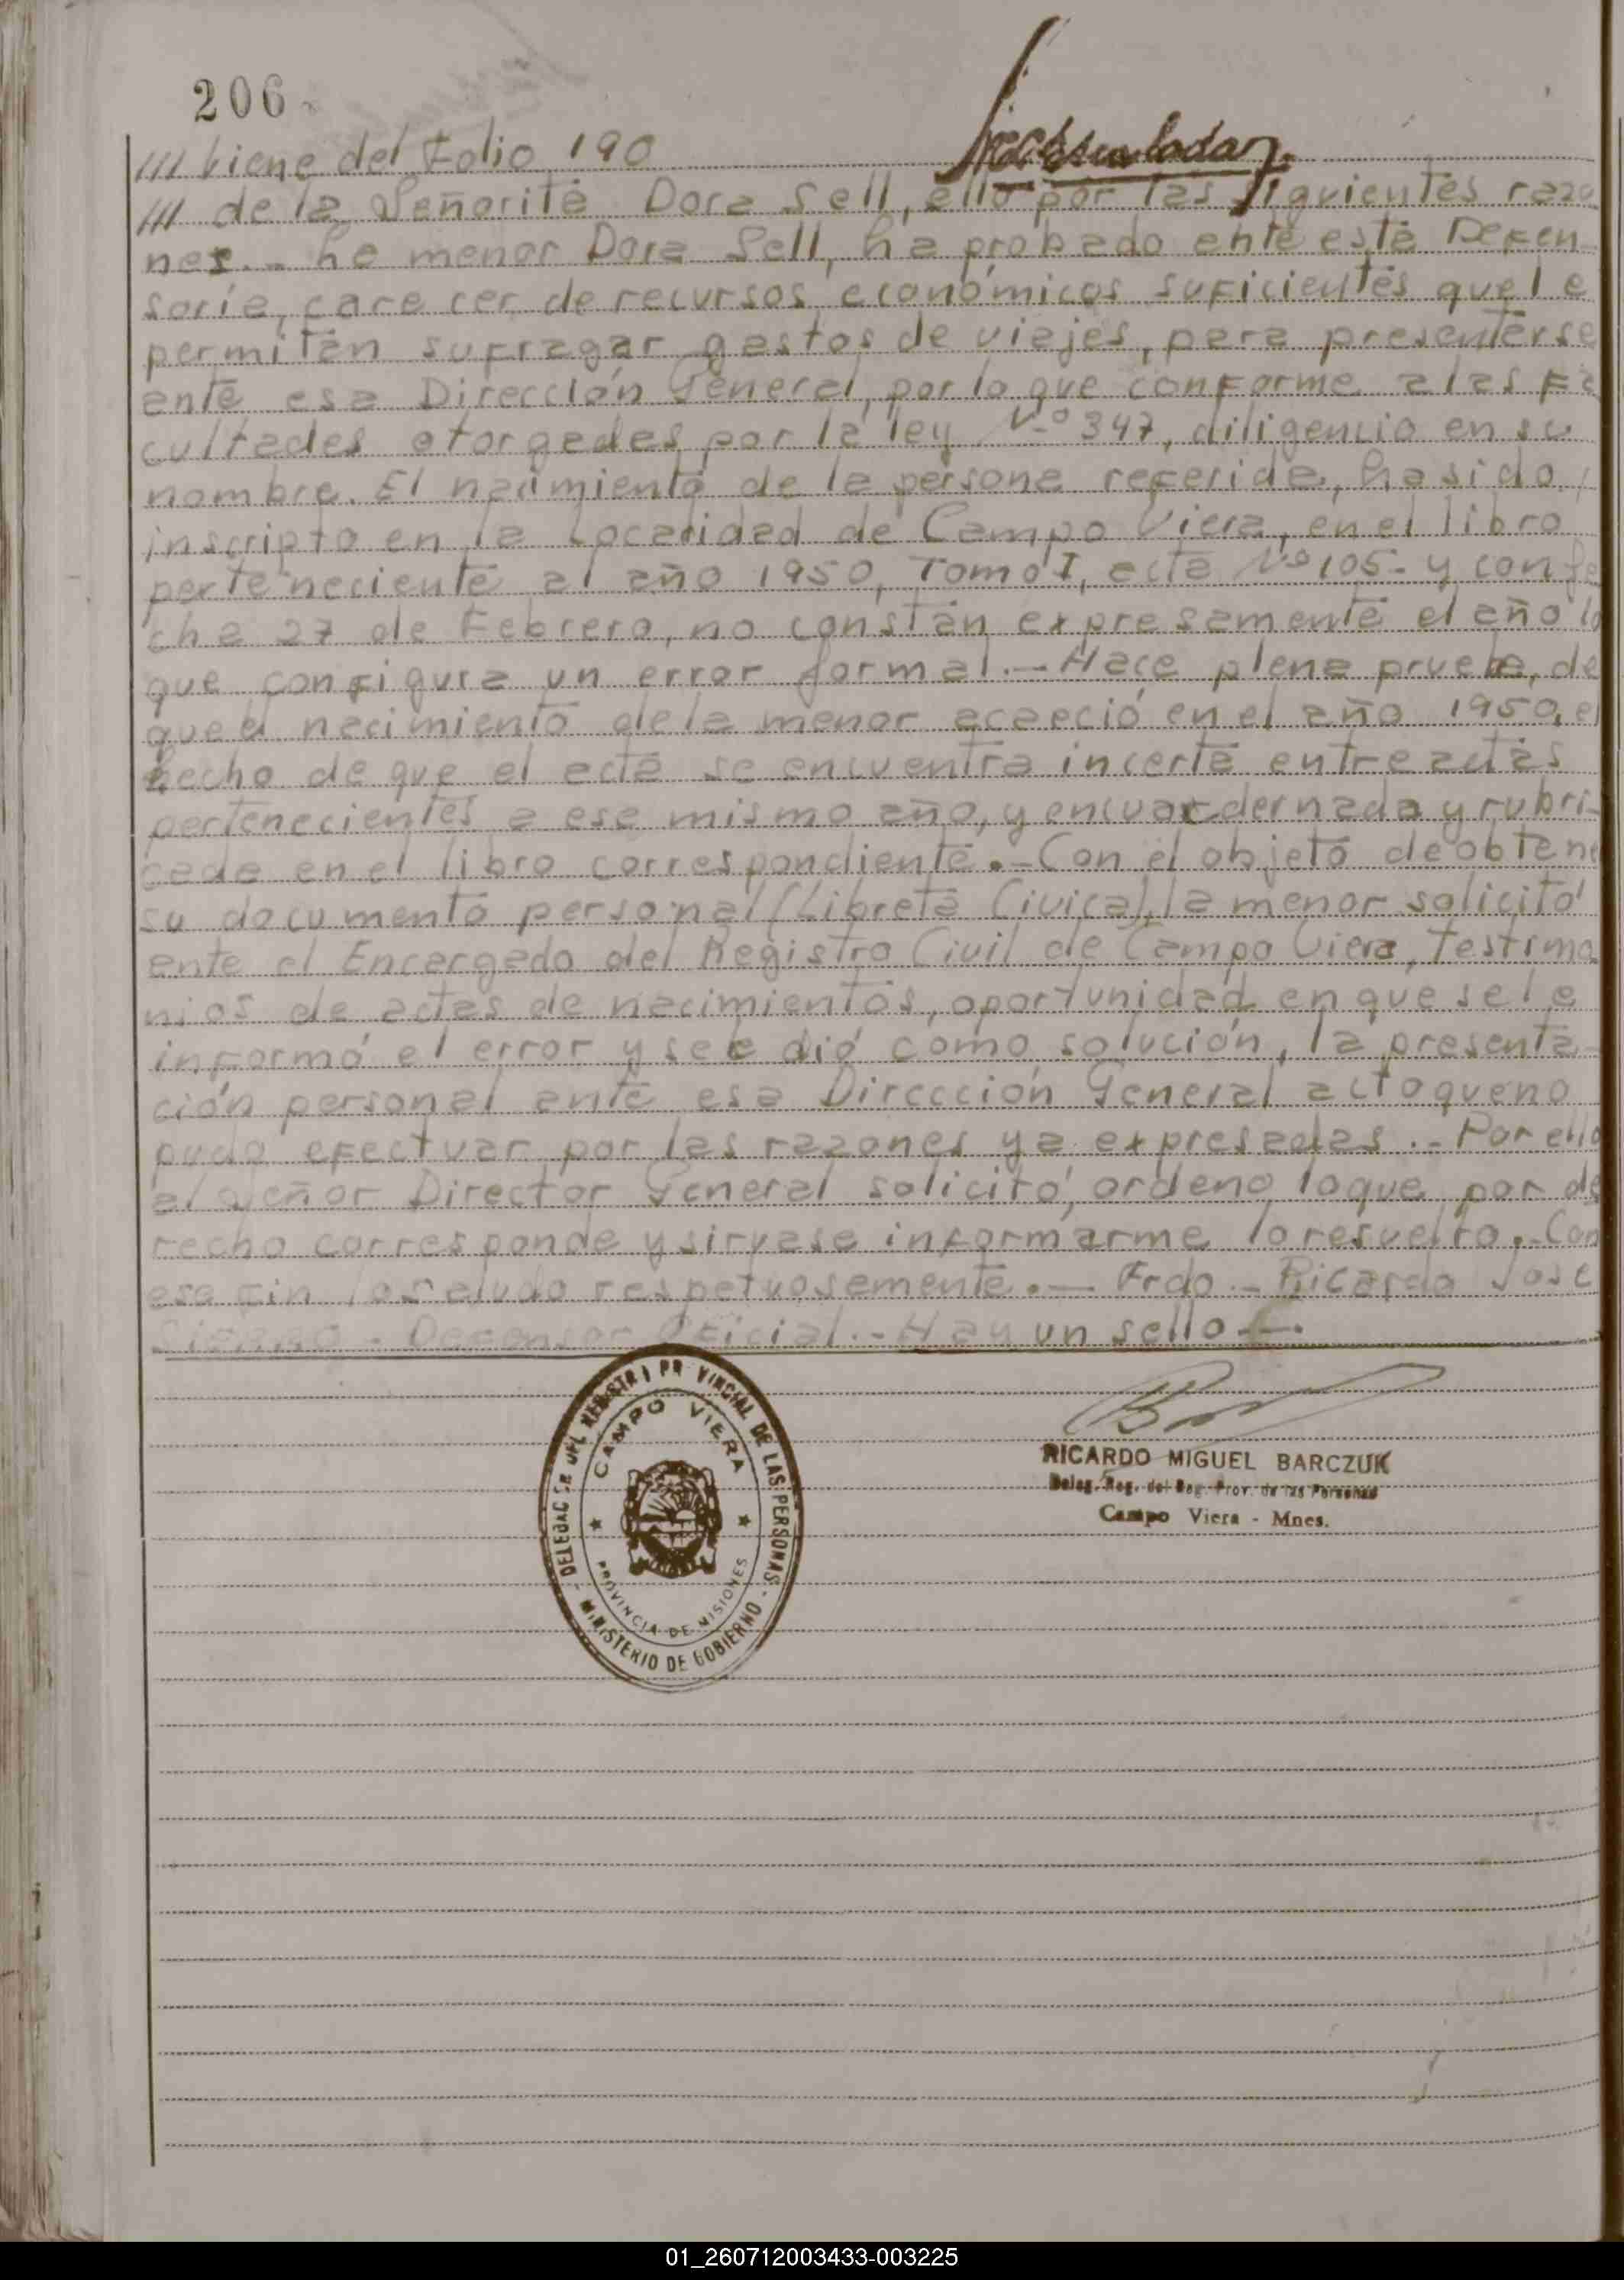 206
/// Viene del Folio 190
/// de la Señorita Dora Sell, ello por las siguientes razo
nes.- La menor Dora Sell, ha probado ante esta Defen-
soria, care cer de recursos económicos suficientes que le
permitan sufragar gastos de viajes, para presentarse
ante esa Dirección General, por lo que conforme a las fa
cultades otorgadas por la ley Nº 347, diligencio en su
nombre. El nacimiento de la persona referida, ha sido
inscripto en la Localidad de Campo Viera, en el libro
perteneciente al año 1950, Tomo I, acta Nº 105- y con fe
cha 27 de Febrero, no constan expresamente el año lo
que configura un error formal.- Hace plena prueba, de
que el nacimiento de la menor acaeció en el año 1950, el
hecho de que el acta se encuentra incerta entre actas
pertenecientes a ese mismo año, y encuadernada y rubri-
cada en el libro correspondiente.- Con el objeto de obtene
su documento personal (Libreta Civica), la menor solicitó
ante el Encargado del Registro Civil de Campo Viera, Testimo
nios de actas de nacimientos, oportunidad en que se le
informó el error y se le dió como solución, la presenta-
ción personal ante esa Direccción General acto que no
pudo efectuar por las razones ya expresadas.- Por ello
al Señor Director General solicitó, ordeno lo que por de
recho corresponde y sirvase informarme lo resuelto.- Con
ese fin lo saludo respetuosemente.- Frdo.- Ricardo Jose
- Defensor Oficial.- Hay un sello -.
DELEGAC DEL REGISTR PR VINCIAL DE LAS PERSONAS - MINISTERIO DE GOBIERNO -
CAMPO VIERA
PROVINCIA DE MISIONES
RICARDO MIGUEL BARCZUK
Deleg. Reg. del Reg. Prov. de las Personas
Campo Viera - Mnes.
01_260712003433-003225